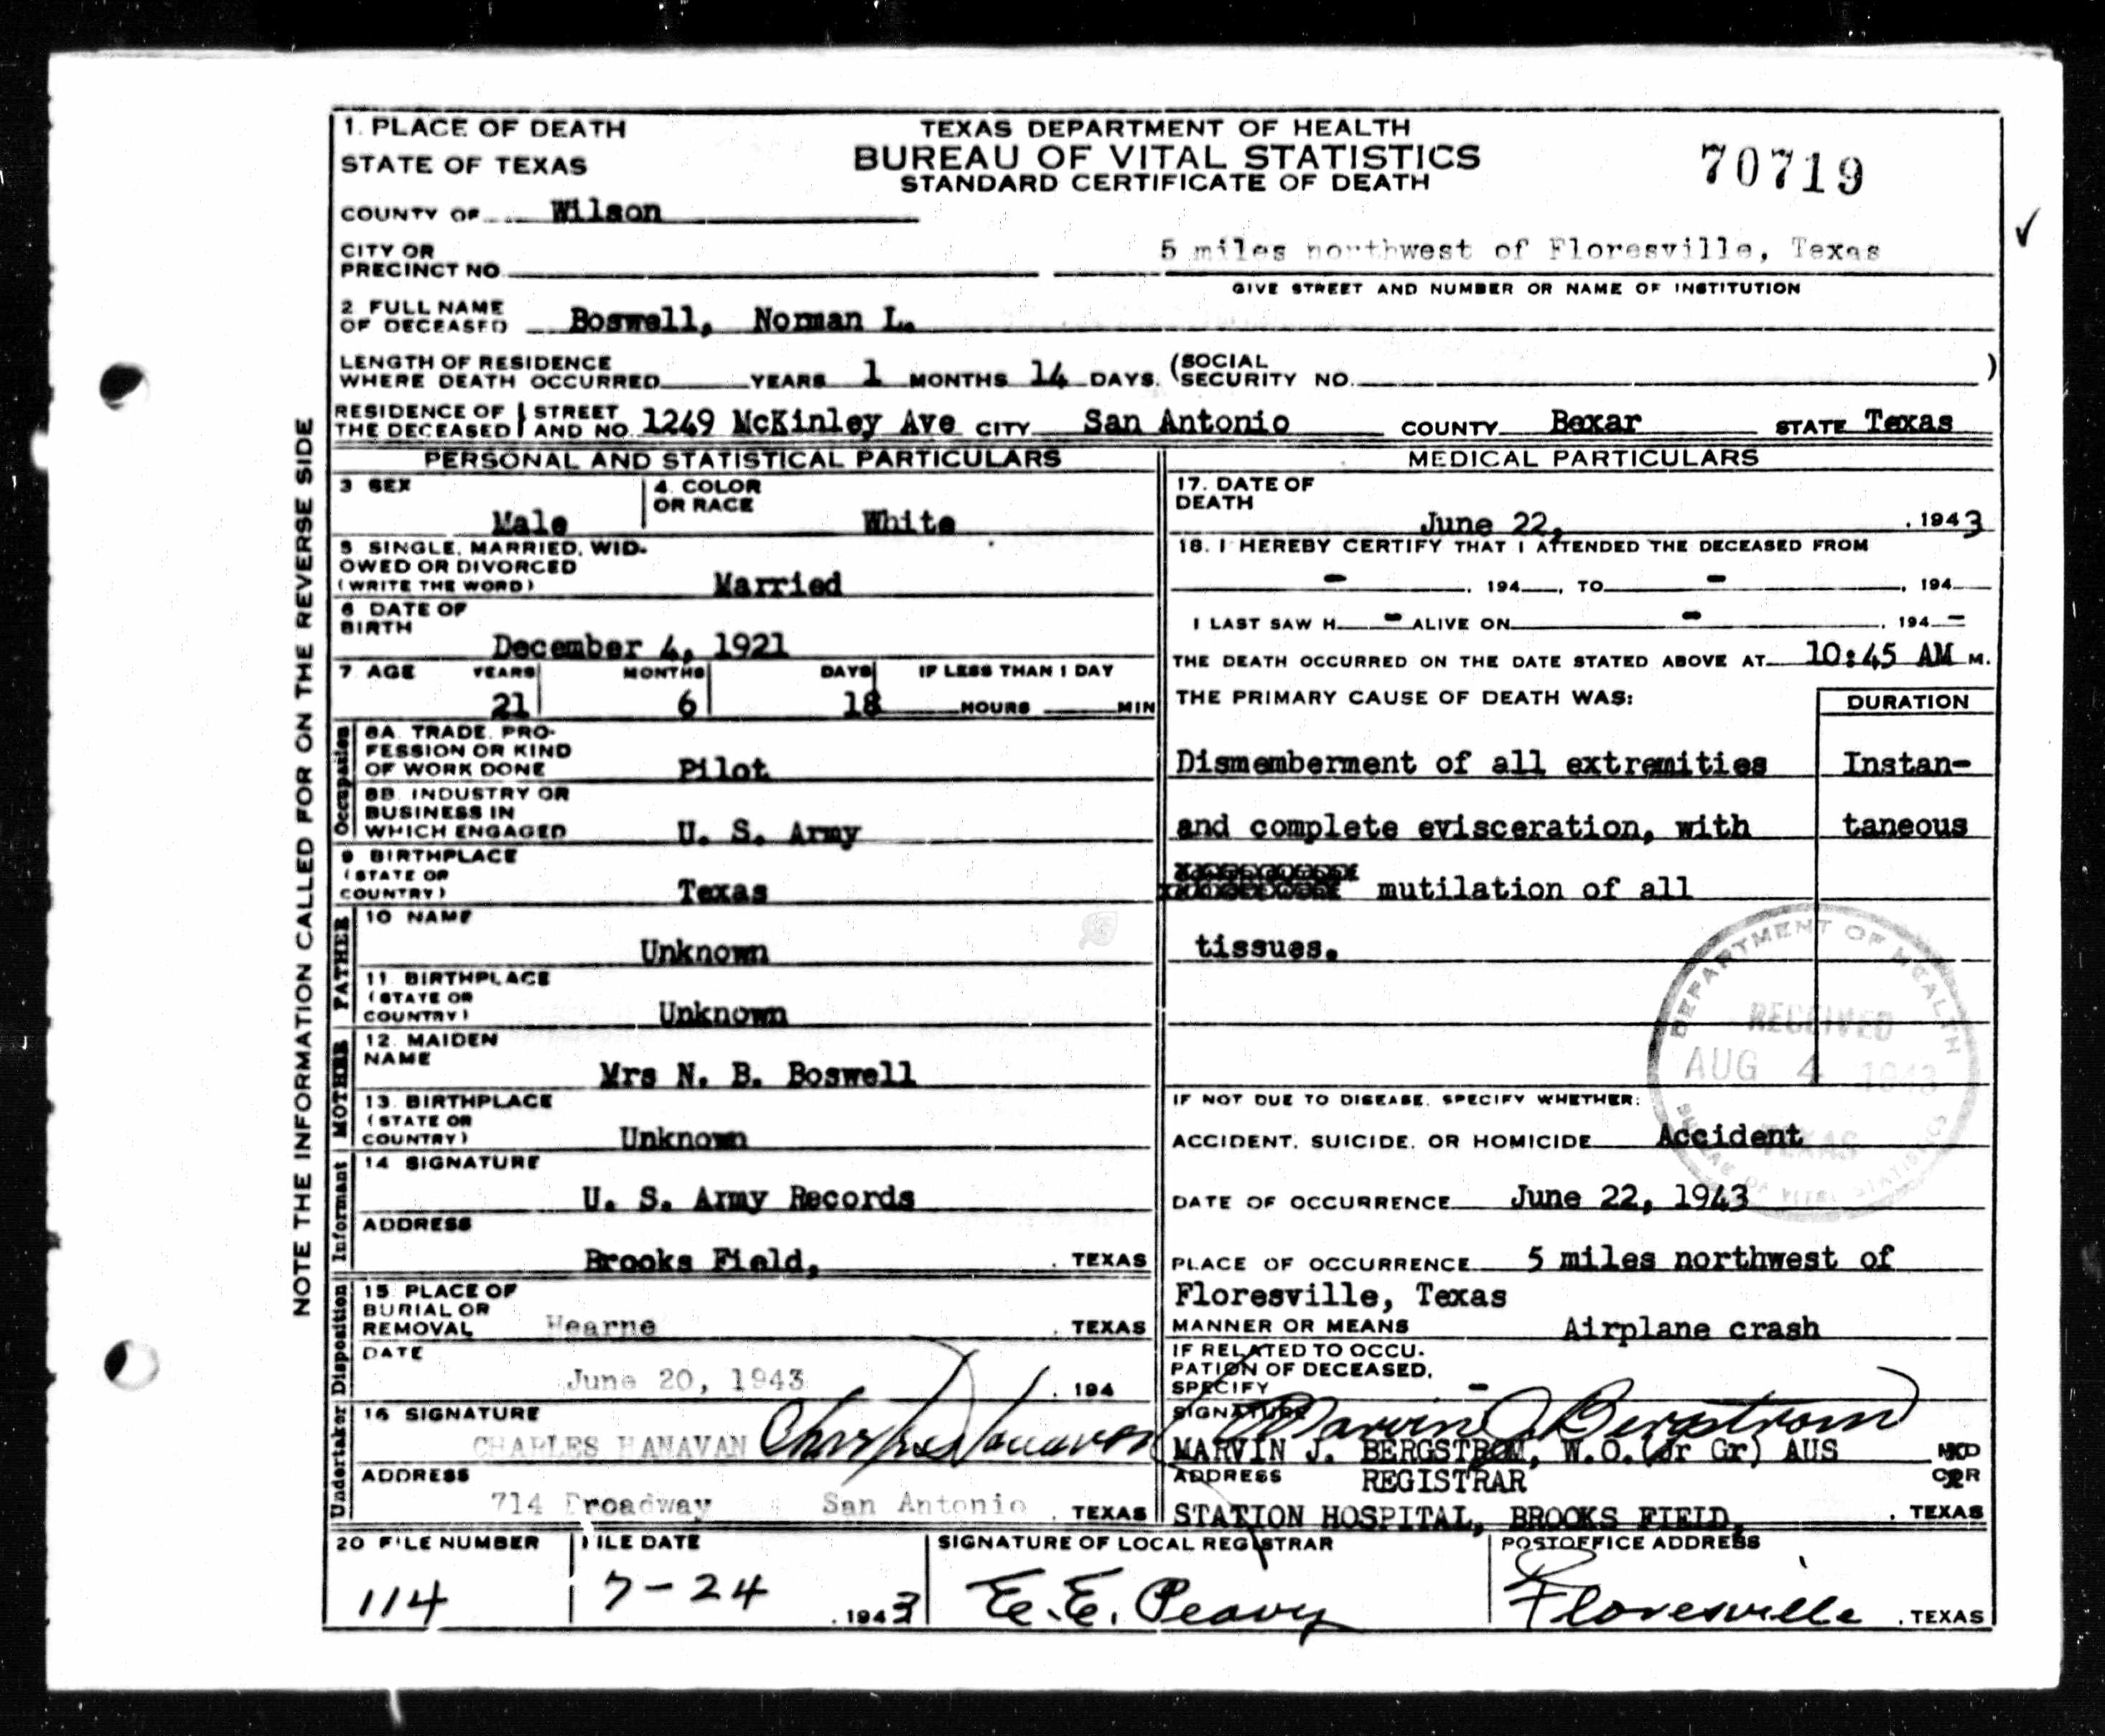 1. PLACE OF DEATH
STATE OF TEXAS
COUNTY OF Wilson
TEXAS DEPARTMENT OF HEALTH
BUREAU OF VITAL STATISTICS
STANDARD CERTIFICATE OF DEATH
70719
CITY OR
PRECINCT NO.
5 miles northwest of Floresville, Texas
GIVE STREET AND NUMBER OR NAME OF INSTITUTION
2 FULL NAME
OF DECEASED Boswell, Norman L.
LENGTH OF RESIDENCE
WHERE DEATH OCCURRED YEARS 1 MONTHS 14 DAYS. (SOCIAL
SECURITY NO. )
RESIDENCE OF THE DECEASED STREET AND NO. 1249 McKinley Ave CITY San Antonio COUNTY Bexar STATE Texas
NOTE THE INFORMATION CALLED FOR ON THE REVERSE SIDE
PERSONAL AND STATISTICAL PARTICULARS
3 SEX
Male
4. COLOR
OR RACE
White
5 SINGLE, MARRIED, WID-
OWED OR DIVORCED
(WRITE THE WORD) Married
6 DATE OF
BIRTH
December 4, 1921
7 AGE YEARS MONTHS DAYS IF LESS THAN 1 DAY
21 6 18 HOURS MIN
Occupation
8A. TRADE, PRO-
FESSION OR KIND
OF WORK DONE Pilot
8B. INDUSTRY OR
BUSINESS IN
WHICH ENGAGED U. S. Army
9 BIRTHPLACE
(STATE OR
COUNTRY) Texas
FATHER
10 NAME
Unknown
11. BIRTHPLACE
(STATE OR
COUNTRY) Unknown
MOTHER
12. MAIDEN
NAME
Mrs N. B. Boswell
13. BIRTHPLACE
(STATE OR
COUNTRY) Unknown
Informant
14 SIGNATURE
U. S. Army Records
ADDRESS
Brooks Field, . TEXAS
Disposition
15 PLACE OF
BURIAL OR
REMOVAL Hearne . TEXAS
DATE
June 20, 1943 . 194
Undertaker
16 SIGNATURE
CHARLES HANAVAN Charles Hanavan
ADDRESS
714 Broadway San Antonio . TEXAS
MEDICAL PARTICULARS
17. DATE OF
DEATH
June 22, . 1943
18. I HEREBY CERTIFY THAT I ATTENDED THE DECEASED FROM
- , 194 , TO - , 194
I LAST SAW H - ALIVE ON - , 194 -
THE DEATH OCCURRED ON THE DATE STATED ABOVE AT 10:45 AM M.
THE PRIMARY CAUSE OF DEATH WAS:
DURATION
Dismemberment of all extremities Instan-
and complete evisceration, with taneous
mutilation of all
tissues.
DEPARTMENT OF HEALTH
RECEIVED
AUG 4 1943
TEXAS
BUREAU OF VITAL STATISTICS
IF NOT DUE TO DISEASE, SPECIFY WHETHER:
ACCIDENT, SUICIDE, OR HOMICIDE Accident
DATE OF OCCURRENCE June 22, 1943
PLACE OF OCCURRENCE 5 miles northwest of
Floresville, Texas
MANNER OR MEANS Airplane crash
IF RELATED TO OCCU-
PATION OF DECEASED,
SPECIFY -
SIGNATURE Marvin J. Bergstrom
MARVIN J. BERGSTROM, W.O.(Jr Gr) AUS
ADDRESS REGISTRAR
STATION HOSPITAL, BROOKS FIELD, . TEXAS
20 FILE NUMBER
114
FILE DATE
7-24 . 1943
SIGNATURE OF LOCAL REGISTRAR
E. E. Peavy
POSTOFFICE ADDRESS
Floresville . TEXAS